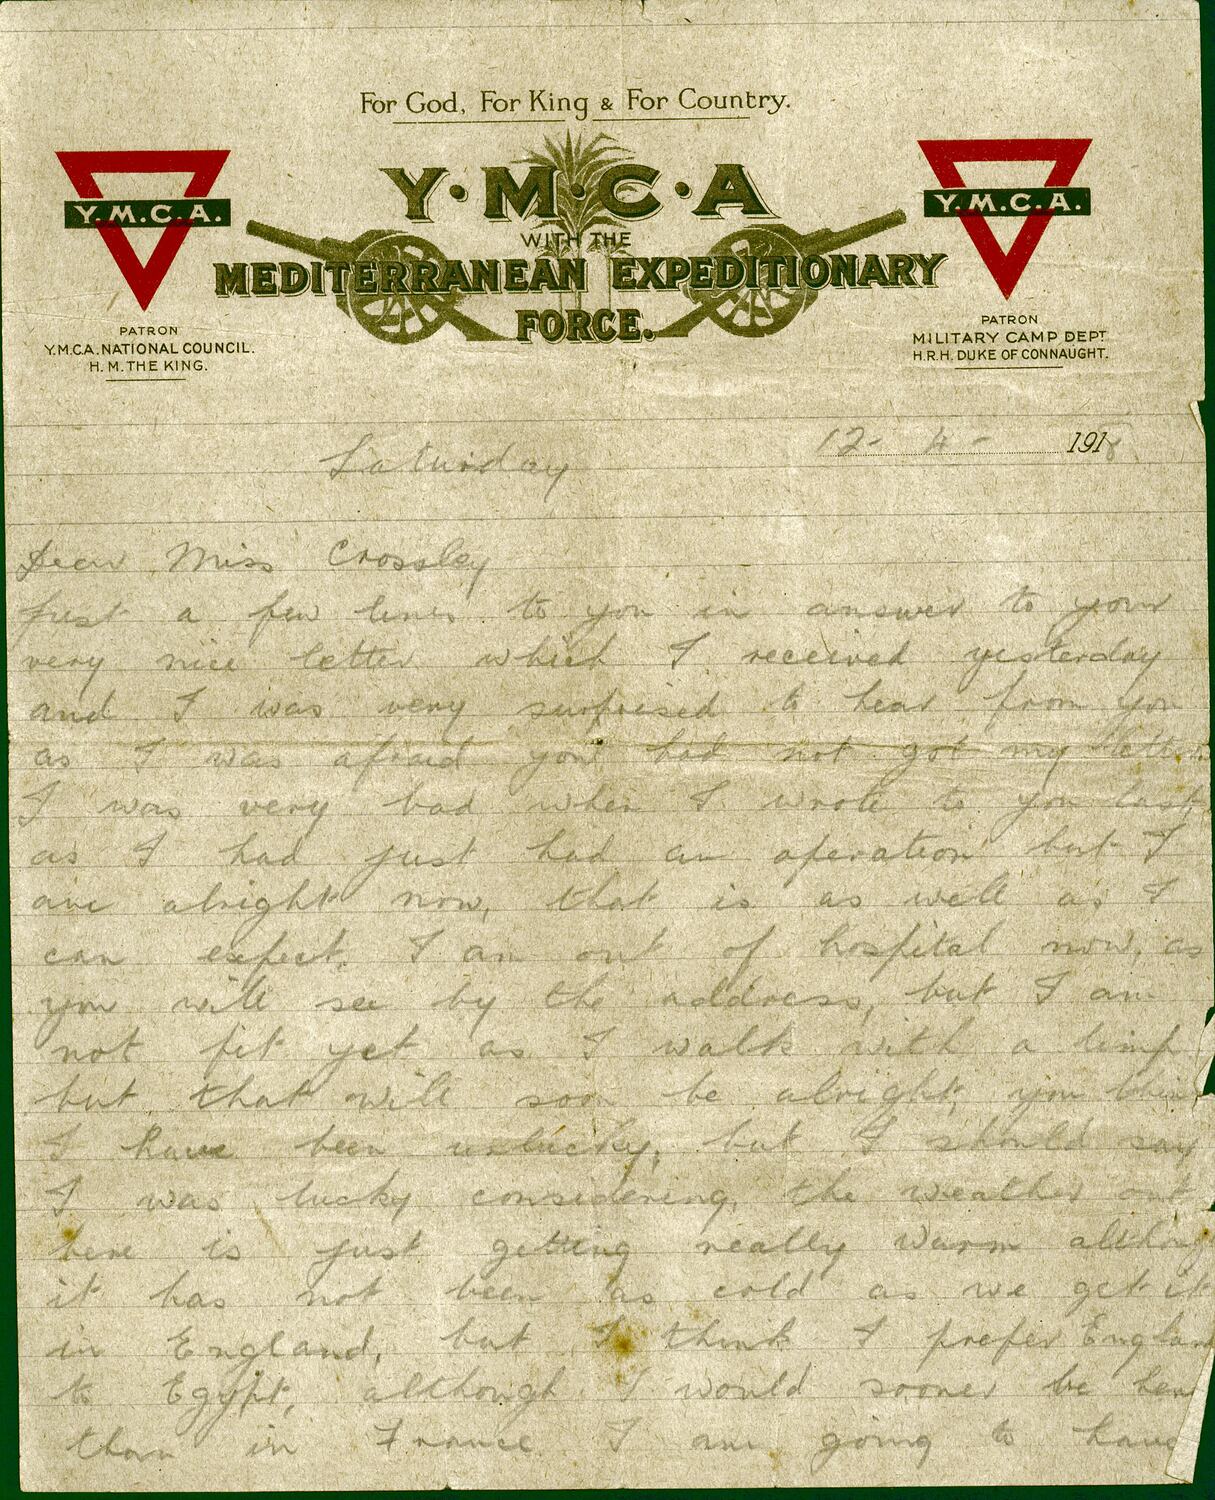 For God, For King & For Country.
Y.M.C.A.
Y.M.C.A
WITH THE
MEDITERRANEAN EXPEDITIONARY
FORCE.
Y.M.C.A.
PATRON
Y.M.C.A. NATIONAL COUNCIL.
H.M. THE KING.
PATRON
MILITARY CAMP DEPT
H.R.H. DUKE OF CONNAUGHT.
12- 4- 1918
Saturday
Dear Miss Crossley
just a few lines to you in answer to your
very nice letter which I received yesterday
and I was very surprised to hear from you
as I was afraid you had not got my letter
I was very bad when I wrote to you last,
as I had just had an operation but I
am alright now, that is as well as I
can expect. I am out of hospital now, as
you will see by the address, but I am
not fit yet as I walk with a limp
but that will soon be alright, you think
I have been unlucky, but I should say
I was lucky considering, the weather out
here is just getting really warm althoug
it has not been as cold as we get it
in England, but I think I prefer Englan
to Egypt, although I would sooner be here
than in France I am going to have